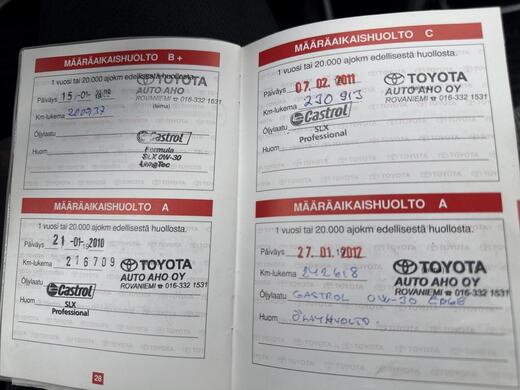 MÄÄRÄAIKAISHUOLTO B+
1 vuosi tai 20.000 ajokm edellisestä huollosta.
Päiväys 15.-01-
TOYOTA
AUTO AHO OY
ROVANIEMI ☎ 016-332 1531
Km-lukema
(leima)
Öljylaatu Castrol
Huom Formula
SLX 0W-30
LongTec
MÄÄRÄAIKAISHUOLTO A
1 vuosi tai 20.000 ajokm edellisestä huollosta.
Päiväys 21 -01- 2010
Km-lukema 216709
TOYOTA
AUTO AHO OY
ROVANIEMI ☎ 016-332 1531
Öljylaatu Castrol
SLX
Huom Professional
28
MÄÄRÄAIKAISHUOLTO C
1 vuosi tai 20.000 ajokm edellisestä huollosta.
Päiväys 07. 02. 2011
TOYOTA
AUTO AHO OY
ROVANIEMI ☎ 016-332 1531
Km-lukema 230913
Öljylaatu Castrol
SLX
Huom Professional
MÄÄRÄAIKAISHUOLTO A
1 vuosi tai 20.000 ajokm edellisestä huollosta.
Päiväys 27. 01. 2012
TOYOTA
AUTO AHO OY
ROVANIEMI ☎ 016-332 1531
Km-lukema 242618
Öljylaatu CASTROL 0W-30 EDGE
Huom ÖLJYHUOLTO.